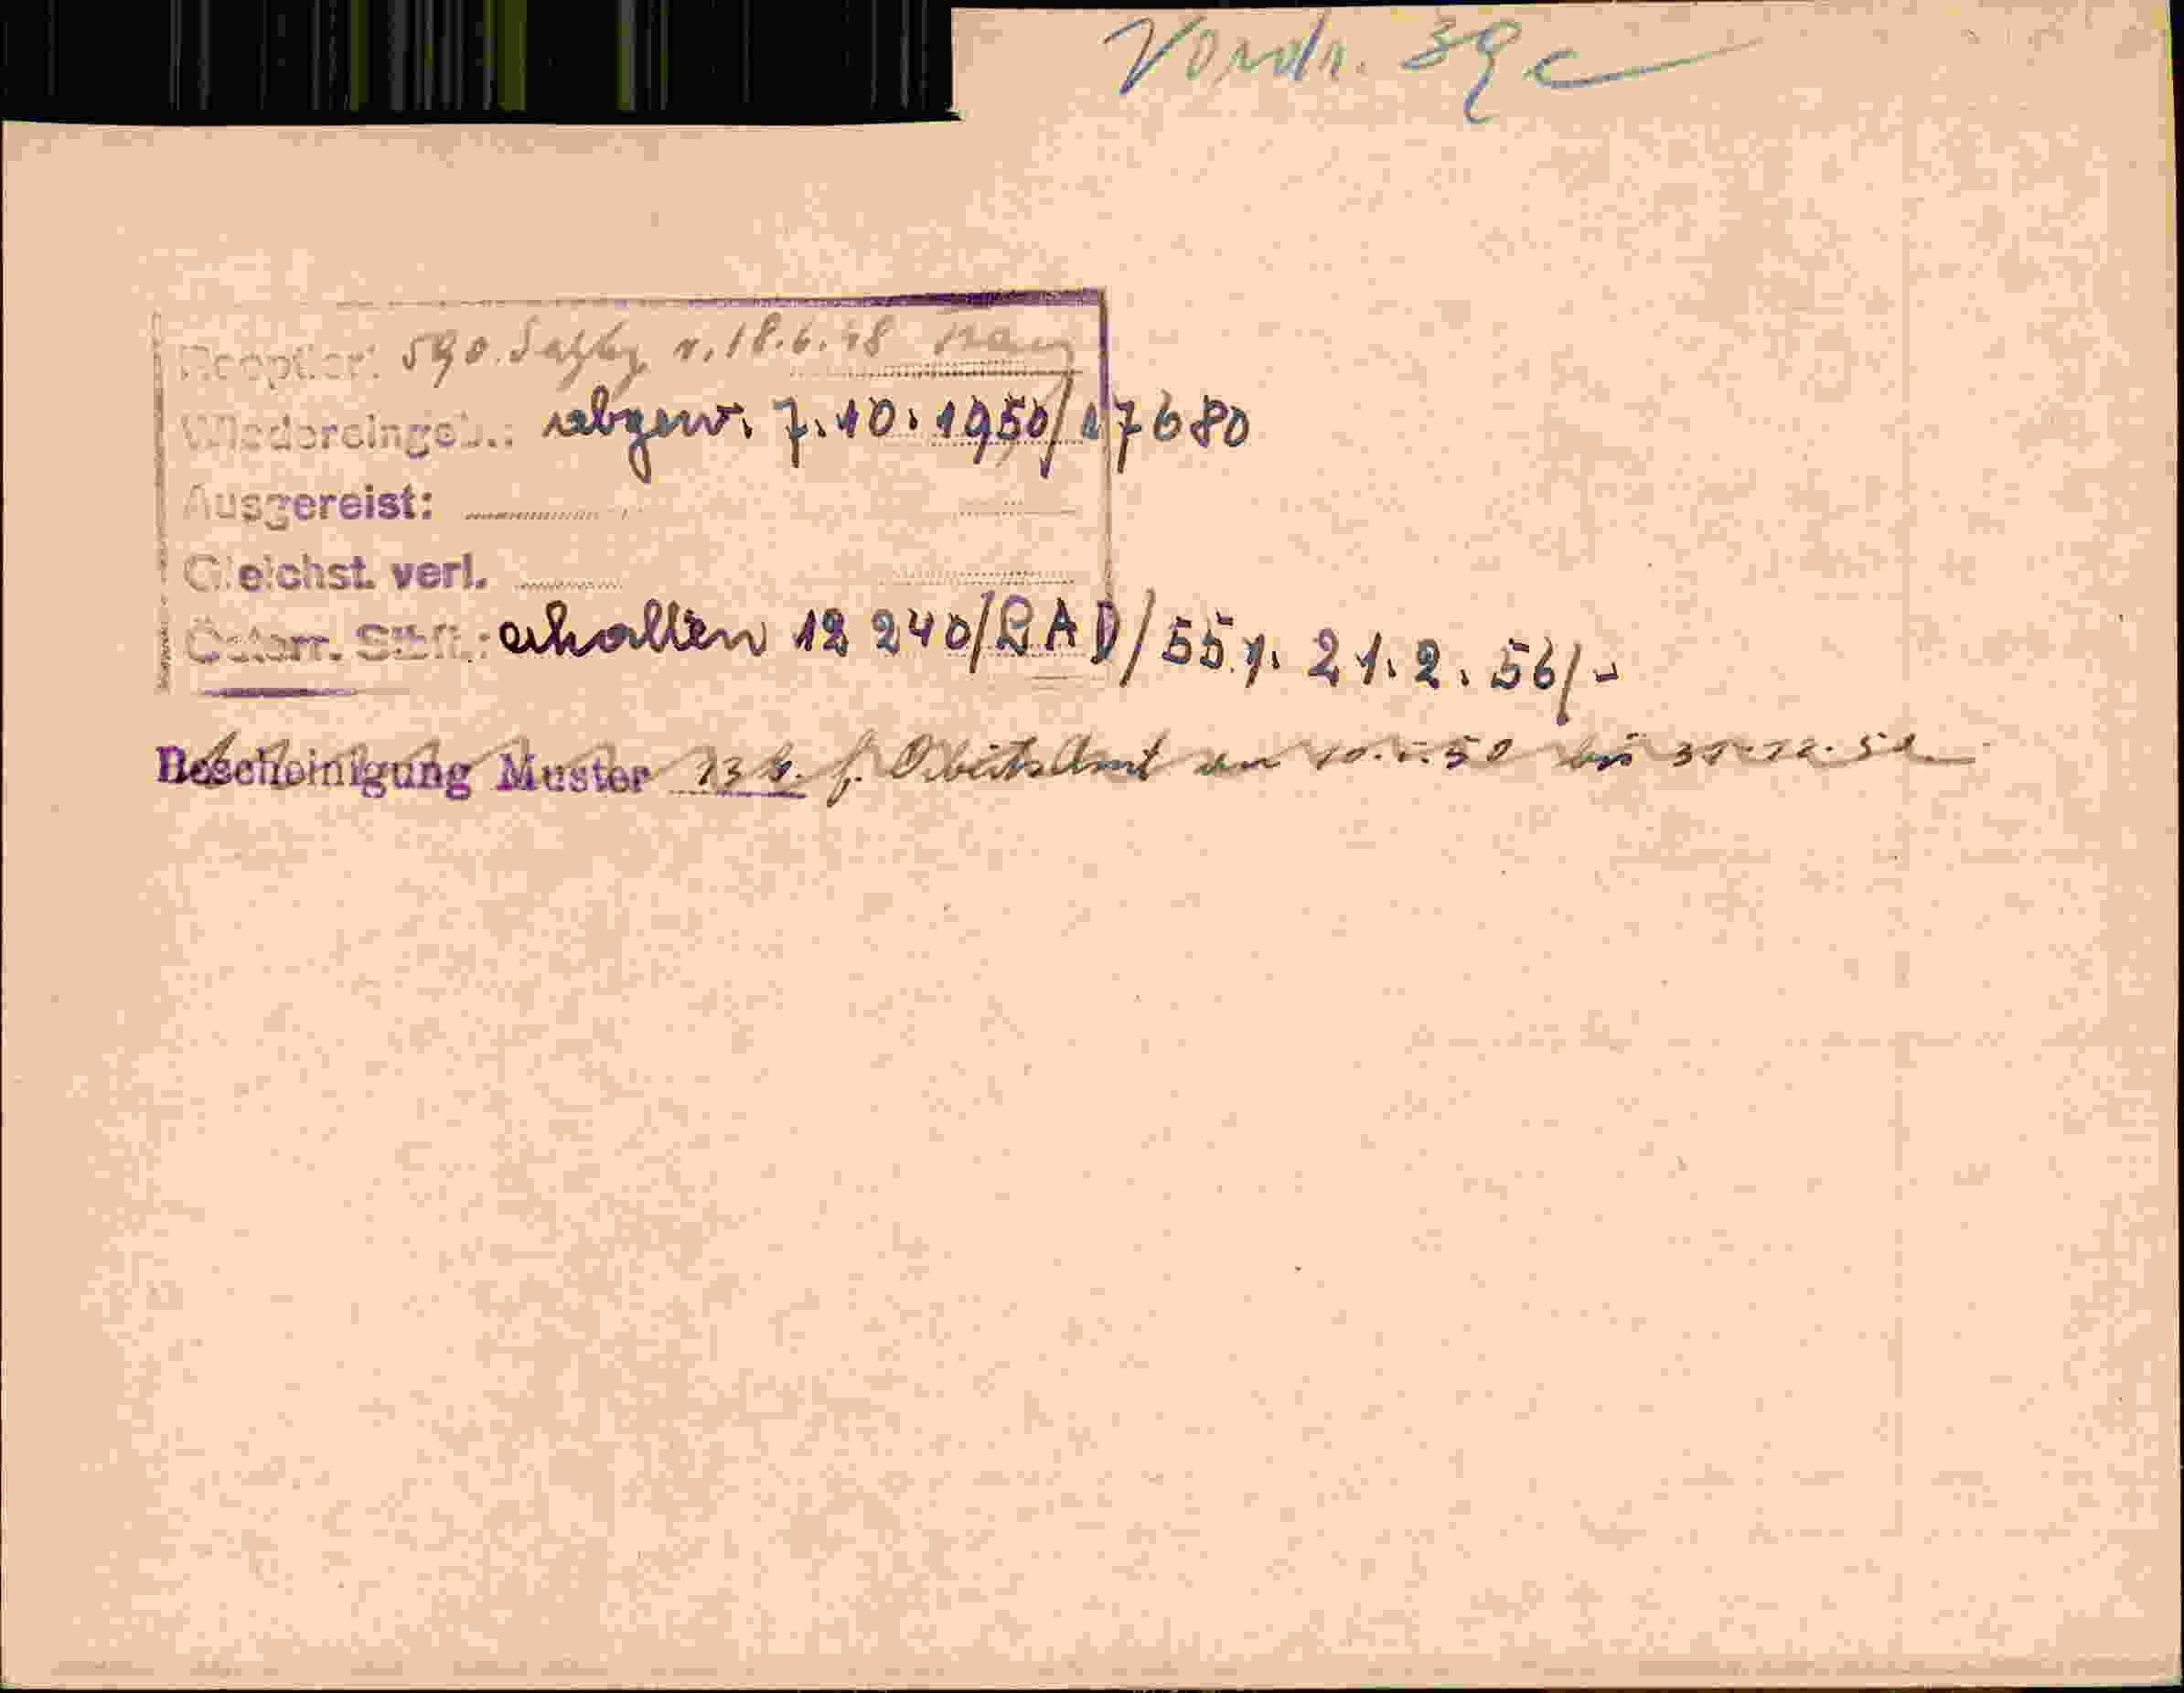 Vordr. 39c
Reoptier: 590 v. 18.6.48
Wiedereingeb.: abgew. 7.10.1950/17680
Ausgereist:
Gleichst. verl.
Österr. StB.: erhalten 12 240/BAD/55 v. 21.2.56/-
Bescheinigung Muster 13 f. Arbeitsamt bis